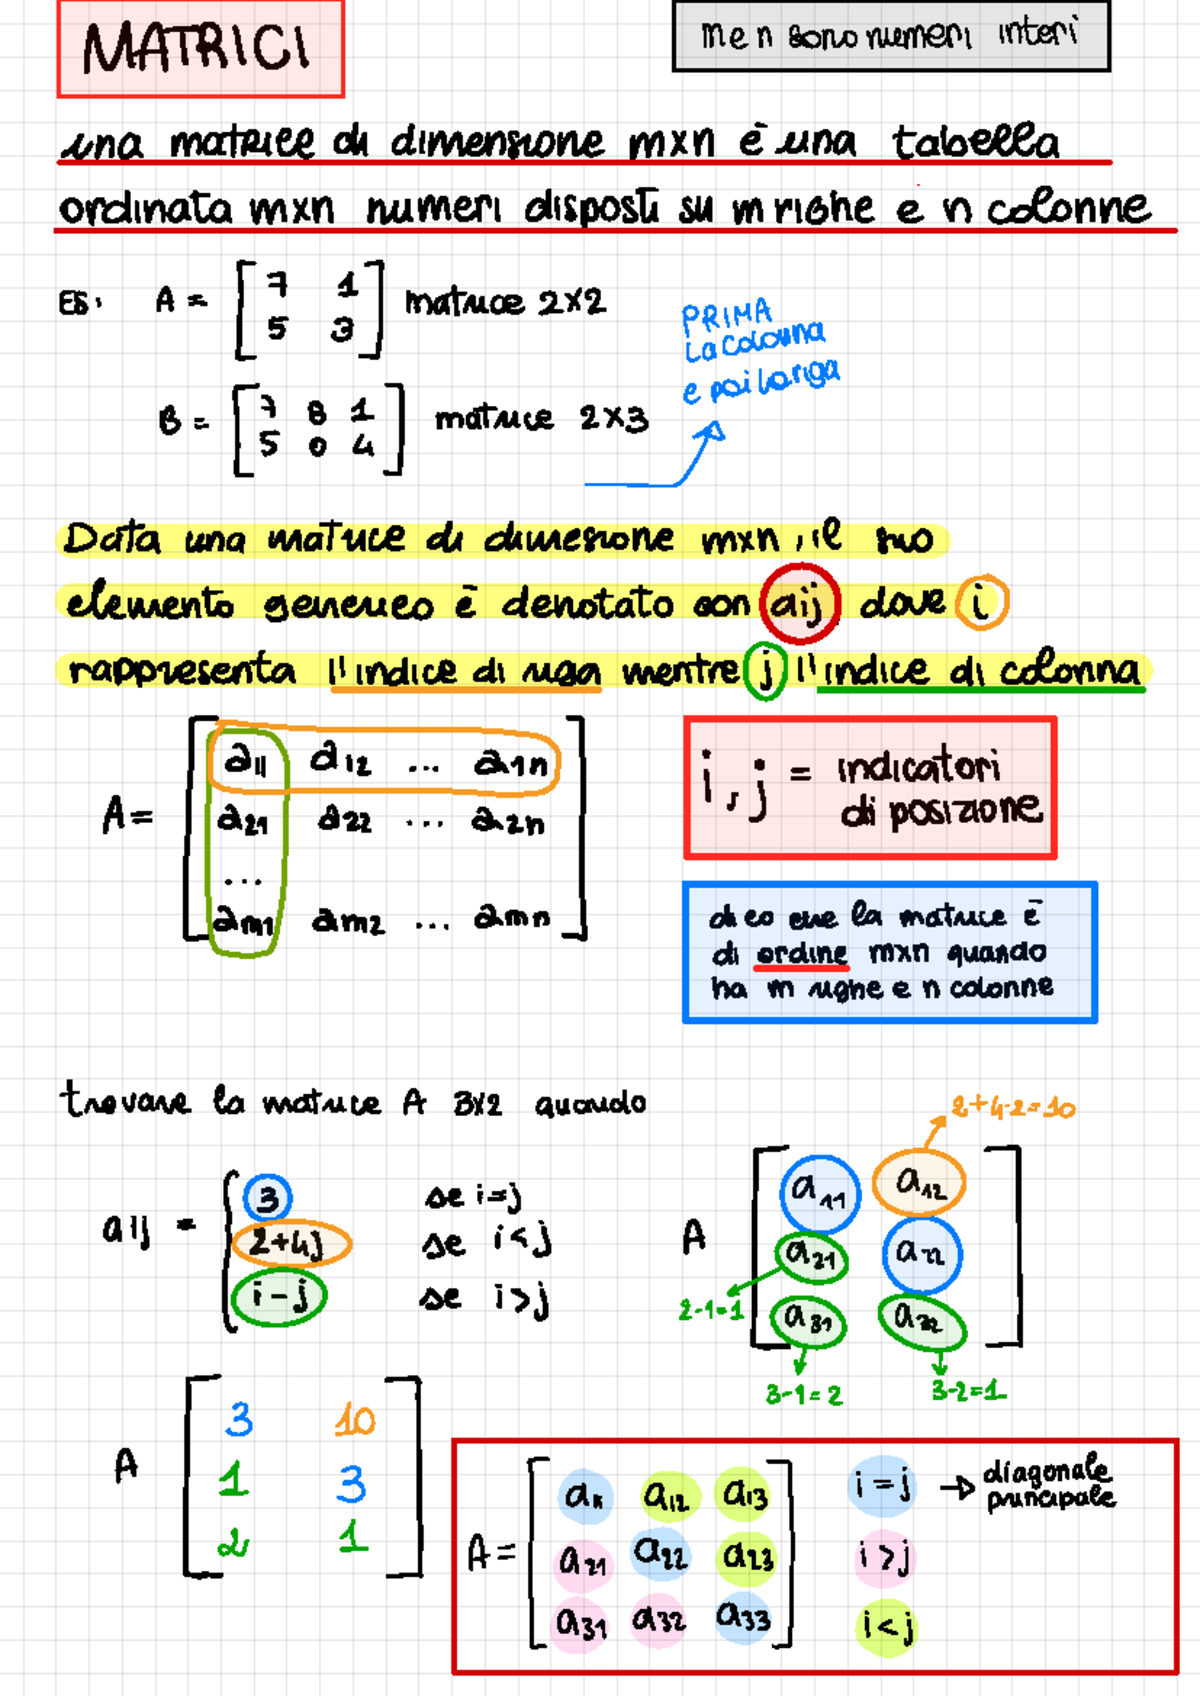 MATRICI
m e n sono numeri interi
una matrice di dimensione mxn è una tabella
ordinata mxn numeri disposti su m righe e n colonne
ES: A = [ 7 1 ] matrice 2x2
[ 5 3 ]
PRIMA
la colonna
e poi la riga
B = [ 7 8 1 ] matrice 2x3
[ 5 0 4 ]
Data una matrice di dimesione mxn, il suo
elemento generico è denotato con aij dove i
rappresenta l'indice di riga mentre j l'indice di colonna
A = [ a11 a12 ... a1n ]
a21 a22 ... a2n
...
am1 am2 ... amn
i, j = indicatori
di posizione
dico che la matrice è
di ordine mxn quando
ha m righe e n colonne
trovare la matrice A 3x2 quando
aij = { 3 se i=j
2+4j se i<j
i-j se i>j
2+4·2=10
A [ a11 a12 ]
a21 a22
2-1=1
a31 a32
3-1=2 3-2=1
A [ 3 10 ]
1 3
2 1
A = [ a11 a12 a13 ] i=j → diagonale
principale
a21 a22 a23 i>j
a31 a32 a33 i<j